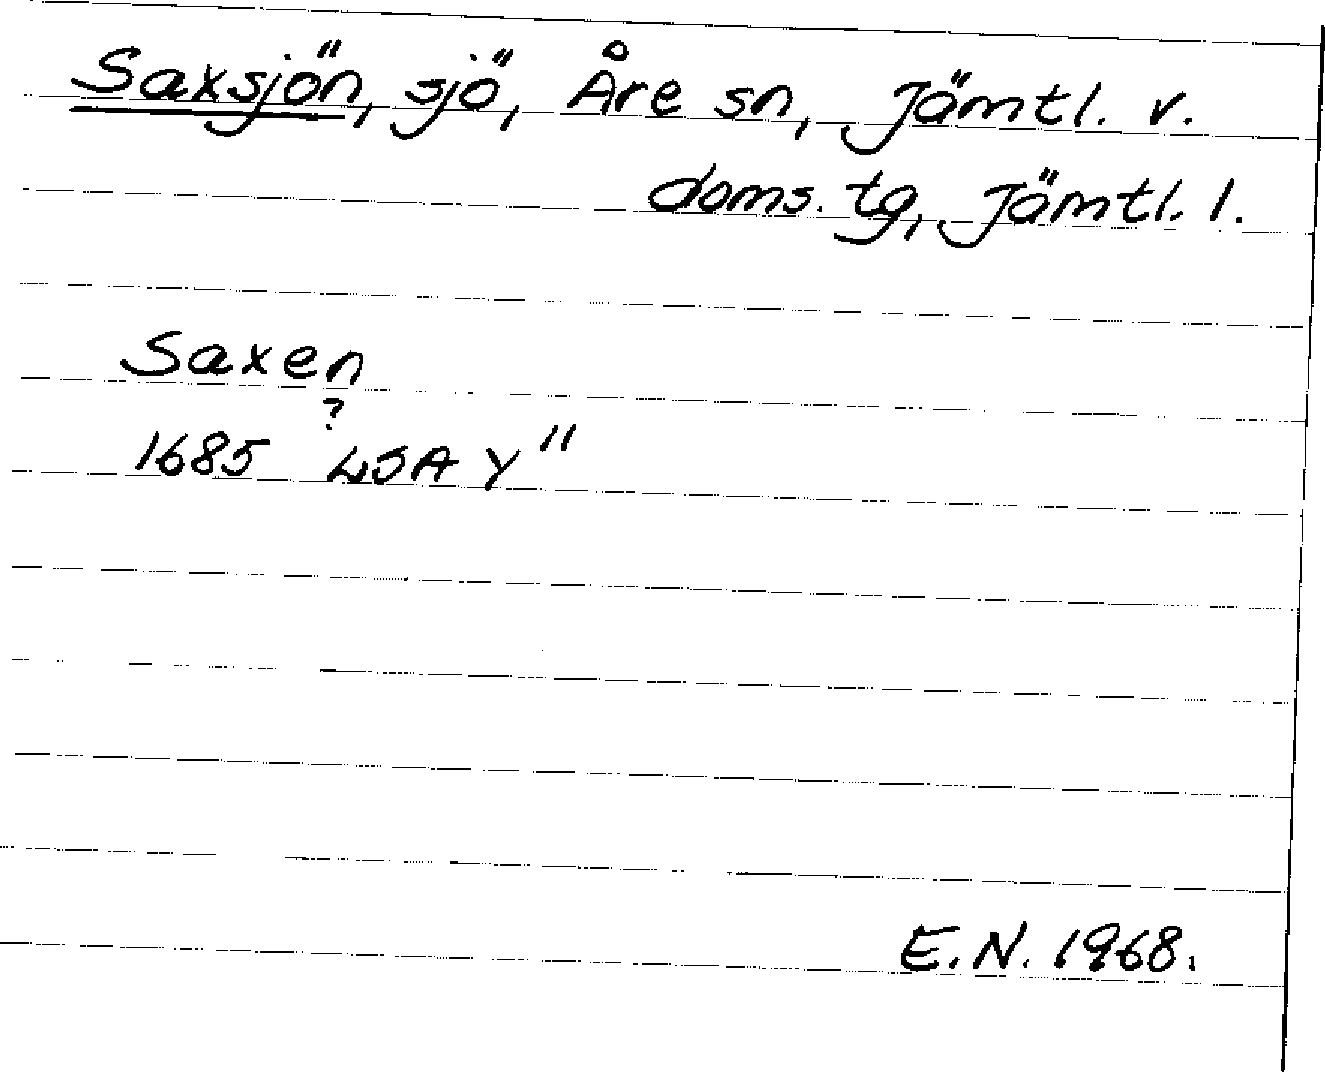 Saxsjön, sjö, Åre sn, Jämtl. v.
doms. tg, Jämtl. l.
Saxen
?
1685 LSA Y"
E.N. 1968.